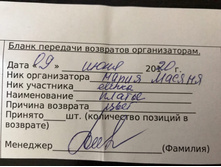 Бланк передачи возвратов организаторам.
Дата 09 » июня 2020 г.
Ник организатора Мария Масяня
Ник участника еленка
Наименование платье
Причина возврата цвет
Принято ____ шт. (количество позиций в
возврате)
Менеджер ____ (Фамилия)